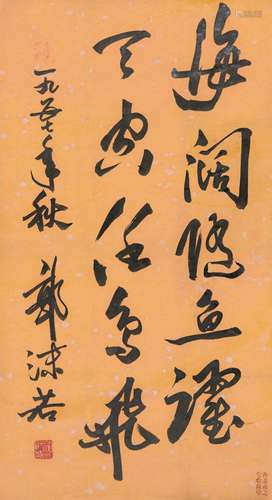 海阔凭鱼跃
天空任鸟飞
一九五七年秋 郭沫若